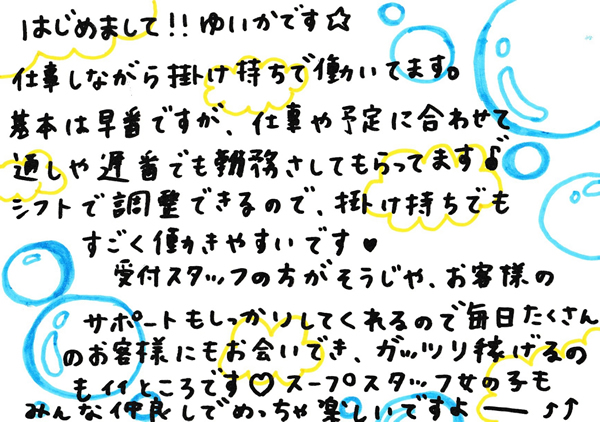 はじめまして!!ゆいかです☆
仕事しながら掛け持ちで働いてます。
基本は早番ですが、仕事や予定に合わせて
通しや遅番でも勤務さしてもらってます♪
シフトで調整できるので、掛け持ちでも
すごく働きやすいです♥
受付スタッフの方がそうじや、お客様の
サポートもしっかりしてくれるので毎日たくさん
のお客様にもお会いでき、ガッツリ稼げるの
もイイところです♡スープスタッフ女の子も
みんな仲良しでめっちゃ楽しいですよ──♪↑